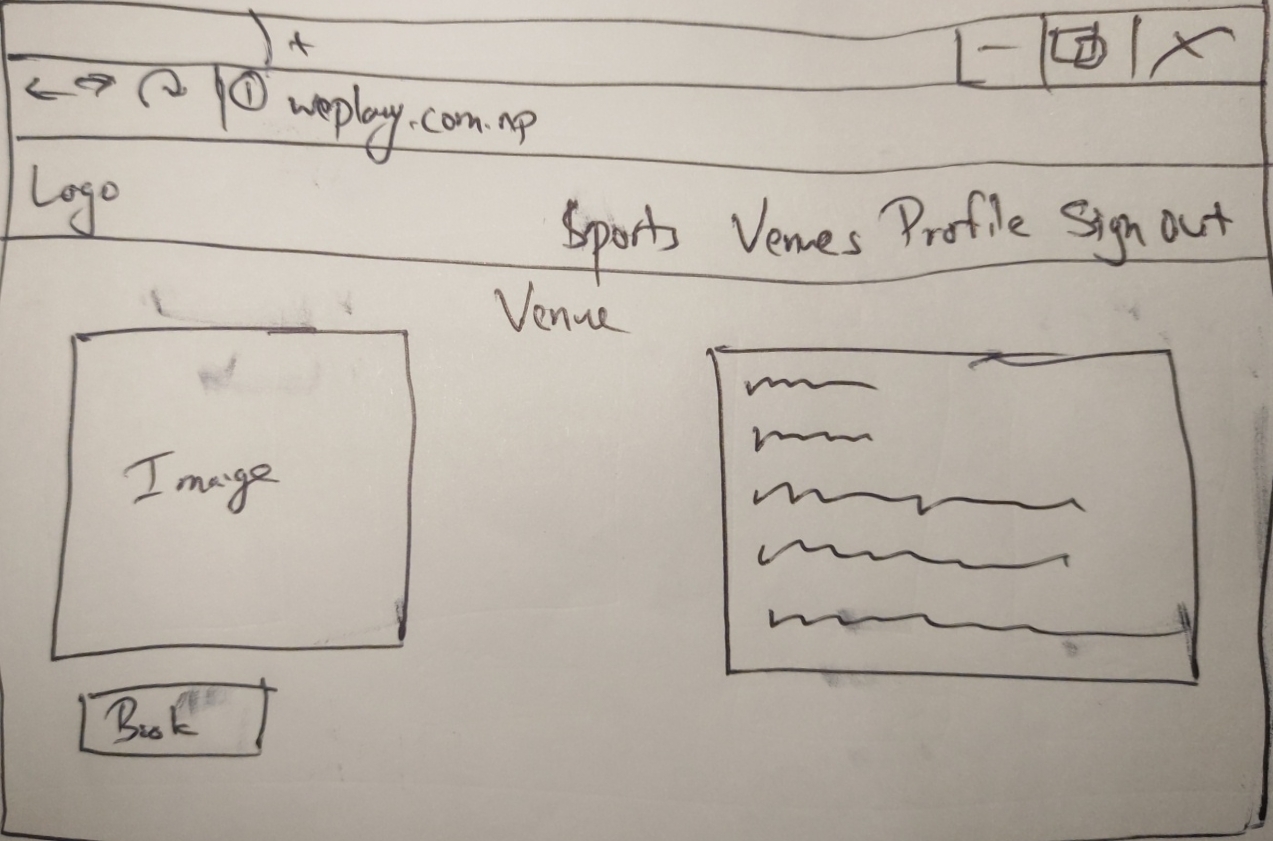 weplay.com.np
Logo
Sports Venues Profile Sign out
Venue
Image
Book